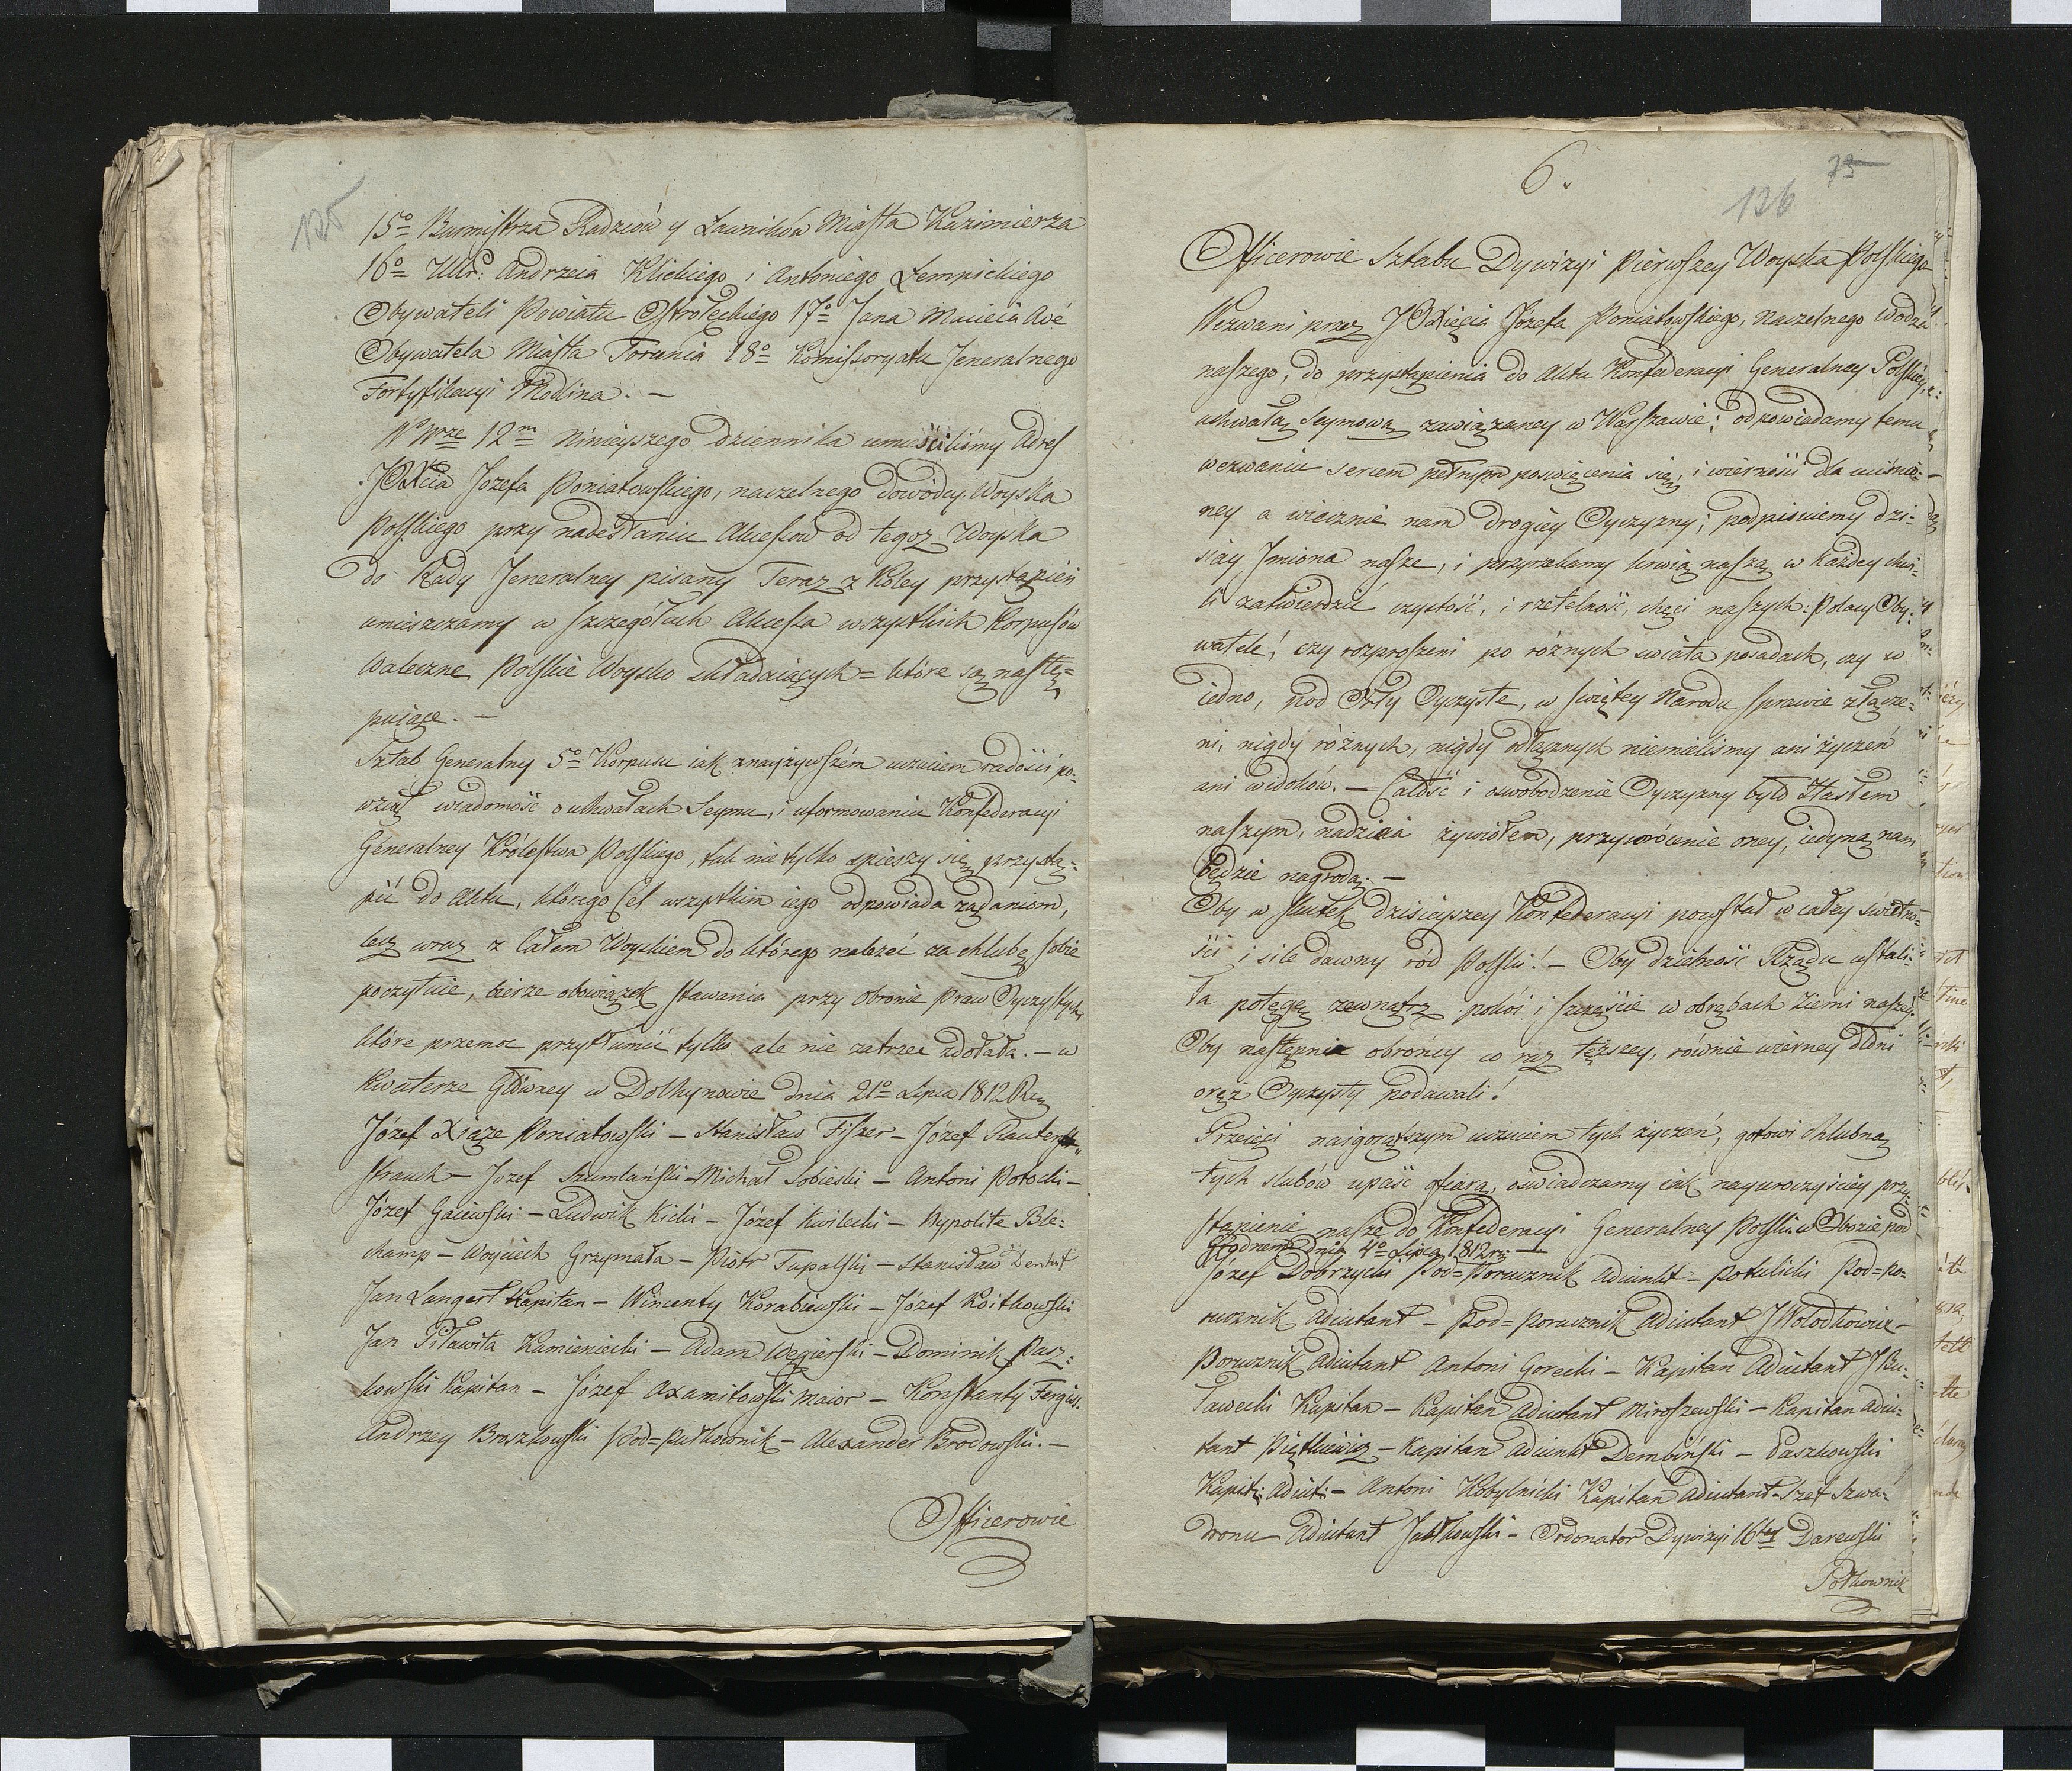 125
15o Burmistrza Radzców y Ławników Miasta Kazimierza
16o Ur: Andrzeia Klickiego i Antoniego Lempickiego
Obywateli Powiatu Ostrołęckiego 17o Jana Macieia Avé
Obywatela Miasta Torunia 18o Komissoryatu Jeneralnego
Fortyfikacyi Modlina. —
W Nrze 12m ninieyszego dziennika umieściliśmy Adres
JOXcia Józefa Poniatowskiego, naczelnego dowódcy Woyska
Polskiego przy nadesłaniu Akcessow od tegoż Woyska
do Rady Jeneralney pisany Teraz z koley przystąpień
umieszczamy w szczegółach Akcessa wszystkich Korpusów
Waleczne Polskie Woysko składaiących = które są nastę=
puiące. —
Sztab Generalny 5o Korpusu iak znayżywszém uczuciem radości po-
wziął wiadomość o uchwałach Seymu, i uformowaniu Konfederacyi
Generalney Królestwa Polskiego, tak nie tylko spieszy się przystą-
pić do Aktu, którego Cel wszystkim iego odpowiada żądaniom,
lecz wraz z całem Woyskiem do którego należeć za chlubę sobie
poczytuie, bierze obowiązek stawania przy obronie Praw Oyczystych
które przemoc przytłumić tylko ale nie zatrzeć zdołała. — w
Kwaterze Główney w Dołhynowie dnia 21o Lipca 1812 Rku
Józef Xiąże Poniatowski — Stanisław Fiszer — Józef Rauten
strauch — Jozef Szumlański — Michał Sobieski — Antoni Potocki —
Józef Gaiewski — Ludwik Kicki — Józef Kwilecki — Hypolite Ble=
champ — Woyciech Grzymała — Piotr Tupalski — Stanisław
Jan Langert Kapitan — Wincenty Korabiewski — Józef Koitkowski
Jan Piławita Kamieniecki — Adam Węgierski — Dominik Pasz:
kowski Kapitan — Józef Axamitowski Maior — Konstanty
Andrzey Broszkowski Pod=Pułkownik — Alexander Brodowski. —
Officerowie
6.
126
73
Officerowie Sztabu Dywizyi Pierwszey Woyska Polskiego
Wezwani przez JOXięcia Józefa Poniatowskiego, Naczelnego Wodza
naszego, do przystąpienia do Aktu Konfederacyi Generalney Polskiey,
uchwałą Seymową zawiązaney w Warszawie; odpowiadamy temu
wezwaniu sercem pełnym poswięcenia się, i wierności dla uciśnio-
ney a wiecznie nam drogiey Oyczyzny; podpisuiemy dzi-
siay Imiona nasze, i przyrzekamy krwią naszą w każdey chwi-
li zatwierdzić czystość, i rzetelność, chęci naszych: Polacy Oby-
watele! czy rozproszeni po różnych swiata posadach, czy w
iedno, pod Orły Oyczyste, w świętey Narodu sprawie złącze-
ni, nigdy różnych, nigdy odłącznych niemieliśmy ani życzeń
ani widoków. — Całość i oswobodzenie Oyczyzny było Hasłem
naszym, nadzieia żywiołem, przywrócenie oney, iedyną nam
będzie nagrodą. —
Oby w skutek dzisieyszey Konfederacyi powstał w całey świetno-
ści i sile dawny ród Polski! — Oby dzielność Rządu ustali-
ła potęgę zewnątrz pokóy i szczęście w obrębach ziemi naszéy.
Oby następni obrońcy co raz tęższey, równie wierney dłoni
oręż Oyczysty podawali!
Przeięci naigorętszym uczuciem tych życzeń, gotowi chlubną
tych slubów upaść ofiarą, oświadczamy iak nayuroczyściey przy-
stąpienie nasze do Konfederacyi Generalney Polski w Obozie pod
Grodnem dnia 4o Lipca 1812 r: —
Józef Dobrzycki Pod=Porucznik Adiutant — Potulicki Pod=Po-
rucznik Adiutant — Pod=Porucznik Adiutant J Wołodkowicz —
Porucznik Adiutant Antoni Gorecki — Kapitan Adiutant J Bu-
ławecki Kapitan — Kapitan Adiutant Miroszewski — Kapitan Adiu-
tant Piętkiewicz — Kapitan Adiutant Dembiński — Paszkowski
Kapit: Adiut: — Antoni Kobylnicki Kapitan Adiutant — Szef Szwa-
dronu Adiutant Jabłkowski — Ordonator Dywizyi 16tey Darewski
Półkownik